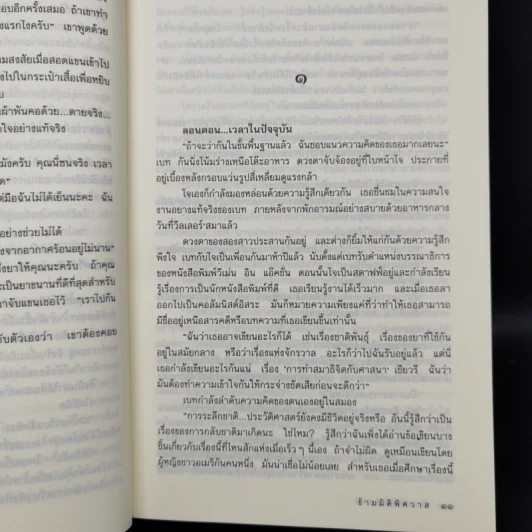 อบอีกครั้งเสมอ ถ้าเขาทำ
งแรกไงครับ” เขาพูดด้วย
มสงสัยเมื่อสอดแขนเข้าไป
งไปในกระเป๋าเสื้อเพื่อหยิบ
บ
ผ้าพันคอด้วย...ตายจริง...
ใจอย่างแท้จริง
มังครับ คุณนี่ซนจริง เวลา
ด”
ต่มือฉันไม่ได้เย็นนะคะ ฉัน
อย่างช่วยไม่ได้
งจากอากาศร้อนอยู่ไม่นาน”
งยาให้คุณนะครับ ถ้าคุณ
ะเป็นยาขนานที่ดีที่สุดสำหรับ
าจับแขนเธอไว้ “เราไปกัน
กับตัวเองว่า เขาต้องคอย
๑
ลอนดอน...เวลาในปัจจุบัน
“ถ้าจะว่ากันในขั้นพื้นฐานแล้ว ฉันชอบแนวความคิดของเธอมากเลยนะ”
เบท กันนิ่งโน้มร่างเหนือโต๊ะอาหาร ดวงตาจับจ้องอยู่ที่ใบหน้าใจ ประกายที่
อยู่เบื้องหลังกรอบแว่นรูปสี่เหลี่ยมดูแรงกล้า
ใจเองก็กำลังมองหล่อนด้วยความรู้สึกเดียวกัน เธอชื่นชมในความสนใจ
งานอย่างแท้จริงของเบท ภายหลังจากพักอารมณ์อย่างสบายด้วยอาหารกลาง
วันที่วีลเลอร์'สมาแล้ว
ดวงตาของสองสาวประสานกันอยู่ และต่างก็ยิ้มให้แก่กันด้วยความรู้สึก
พึงใจ เบทกับใจเป็นเพื่อนกันมาห้าปีแล้ว นับตั้งแต่เบทรับตำแหน่งบรรณาธิการ
ของหนังสือพิมพ์วีเม่น อิน แอ๊คชั่น ตอนนั้นใจเป็นสตาฟฟ์อยู่และกำลังเรียน
รู้เรื่องการเป็นนักหนังสือพิมพ์ที่ดี เธอเรียนรู้งานได้เร็วมาก และเมื่อเธอลา
ออกไปเป็นคอลัมนิสต์อิสระ มันก็หมายความเพียงแค่ที่ว่าทำให้เธอสามารถ
มีชื่ออยู่เหนือสารคดีหรือบทความที่เธอเขียนขึ้นเท่านั้น
“ฉันว่าเธออาจเขียนอะไรก็ได้ เช่นเรื่องชาติพันธุ์ เรื่องของยาที่ใช้กัน
อยู่ในสมัยกลาง หรือว่าเรื่องแห่งจักรวาล อะไรก็ว่าไปฉันรับอยู่แล้ว แต่นี่
เธอกำลังเขียนอะไรกันแน่ เรื่อง ‘การทำสมาธิจิตกับศาสนา’ เชียวรึ ฉันว่า
มันต้องทำความเข้าใจกันให้กระจ่างชัดเสียก่อนจะดีกว่า”
เบทกำลังลำดับความคิดของตนเองอยู่ในสมอง
“การระลึกชาติ...ประวัติศาสตร์ยังคงมีชีวิตอยู่จริงหรือ อันนี้รู้สึกว่าเป็น
เรื่องของการกลับชาติมาเกิดนะ ใช่ไหม? รู้สึกว่าฉันเพิ่งได้อ่านข้อเขียนบาง
ชิ้นเกี่ยวกับเรื่องนี้ที่ไหนสักแห่งเมื่อเร็ว ๆ นี้เอง ถ้าจำไม่ผิด ดูเหมือนเขียนโดย
ผู้หญิงชาวอเมริกันคนหนึ่ง มันน่าเชื่อไม่น้อยเลย สำหรับเธอเมื่อศึกษาเรื่องนี้
ข้ามมิติพิศวาส ๑๑